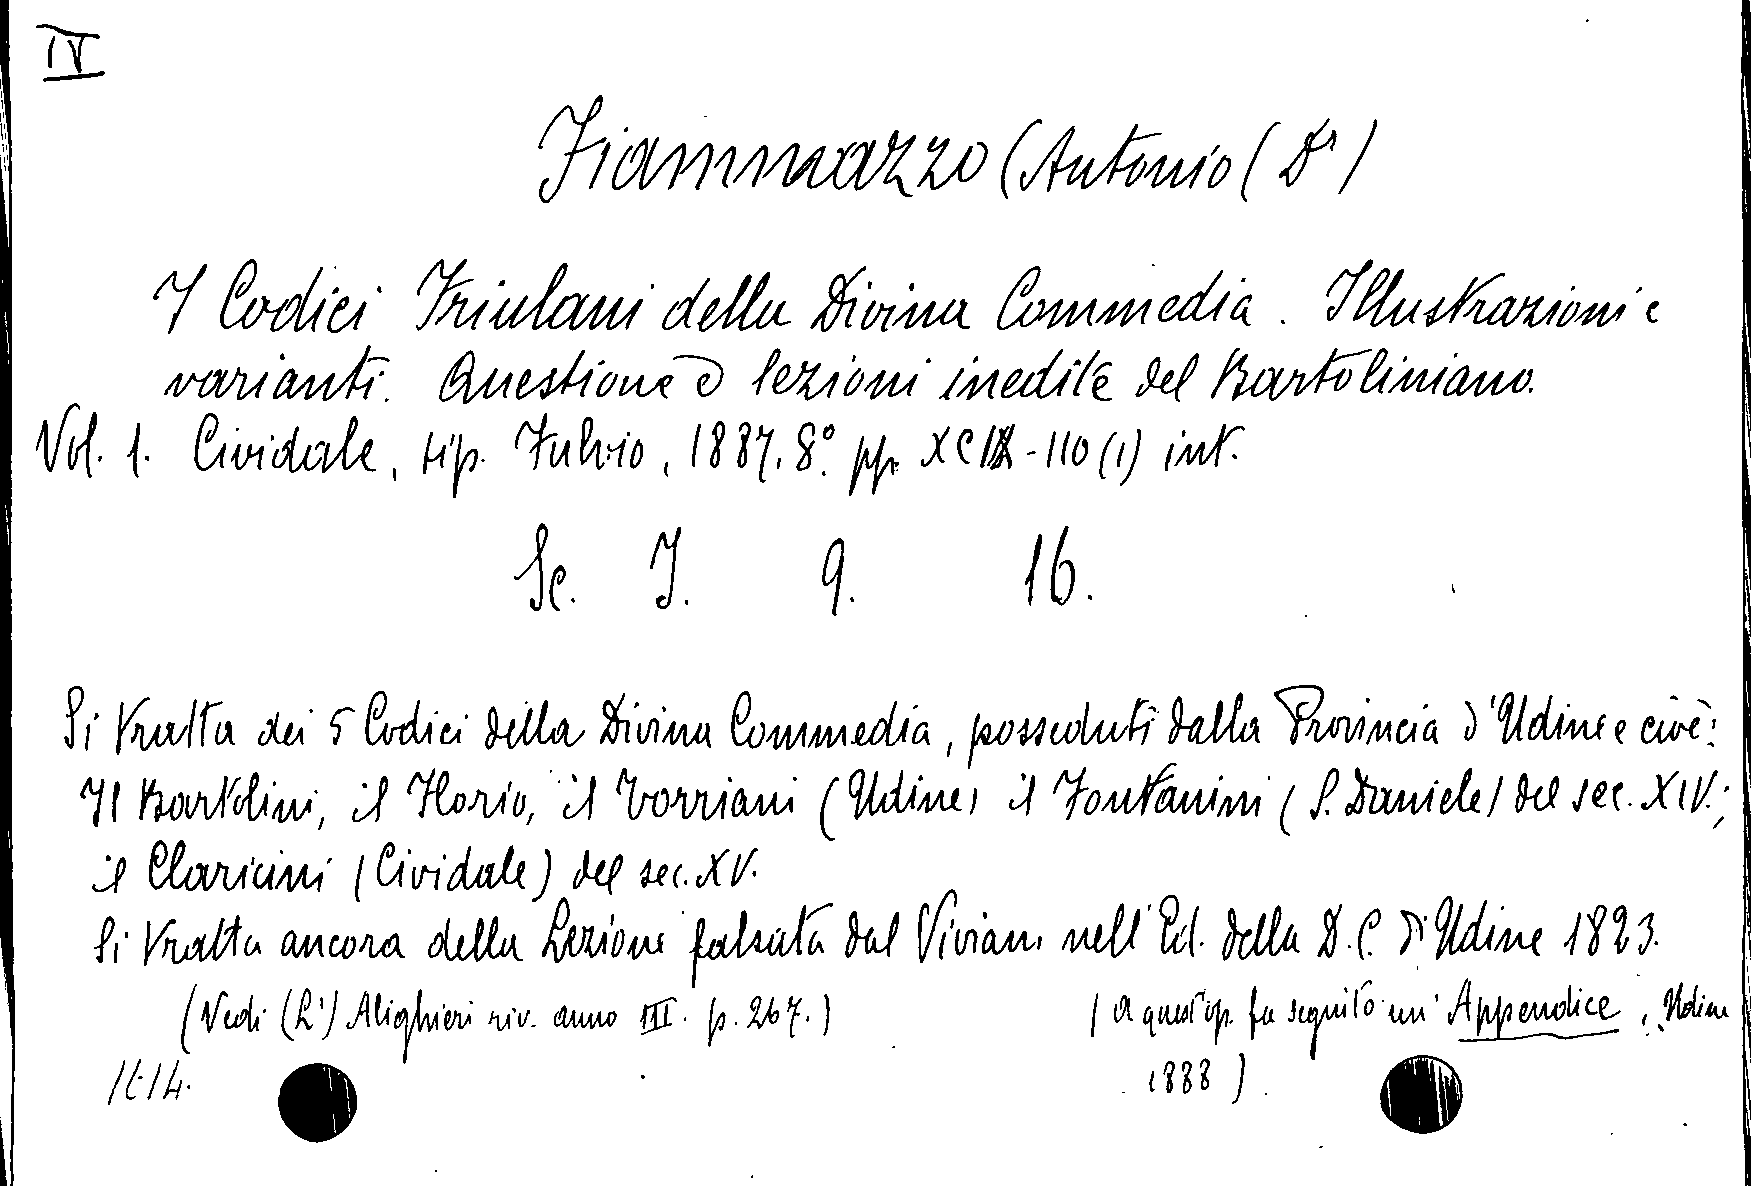 IV
Fiammazzo (Antonio (Dr)
I Codici Friulani della Divina Commedia. Illustrazioni e
varianti. Questione e lezioni inedite del Bartoliniano.
Vol. 1. Cividale, tip. Fulvio, 1887. 8º. pp. - 110 (1) int.
Sc. I. 9. 16.
Si tratta dei 5 Codici della Divina Commedia, posseduti dalla Provincia d'Udine e cioè:
Il Bartolini, il Florio, il Torriani (Udine) il Fontanini (S. Daniele) del sec. XIV.;
il Claricini (Cividale) del sec. XV.
Si tratta ancora della Lezione falsata dal Viviani nell'Ed. della D. C. di Udine 1823.
(Vedi (L') Alighieri riv. anno III. p. 267.)
(A quest'op. fa seguito un'Appendice, Udine
1888)